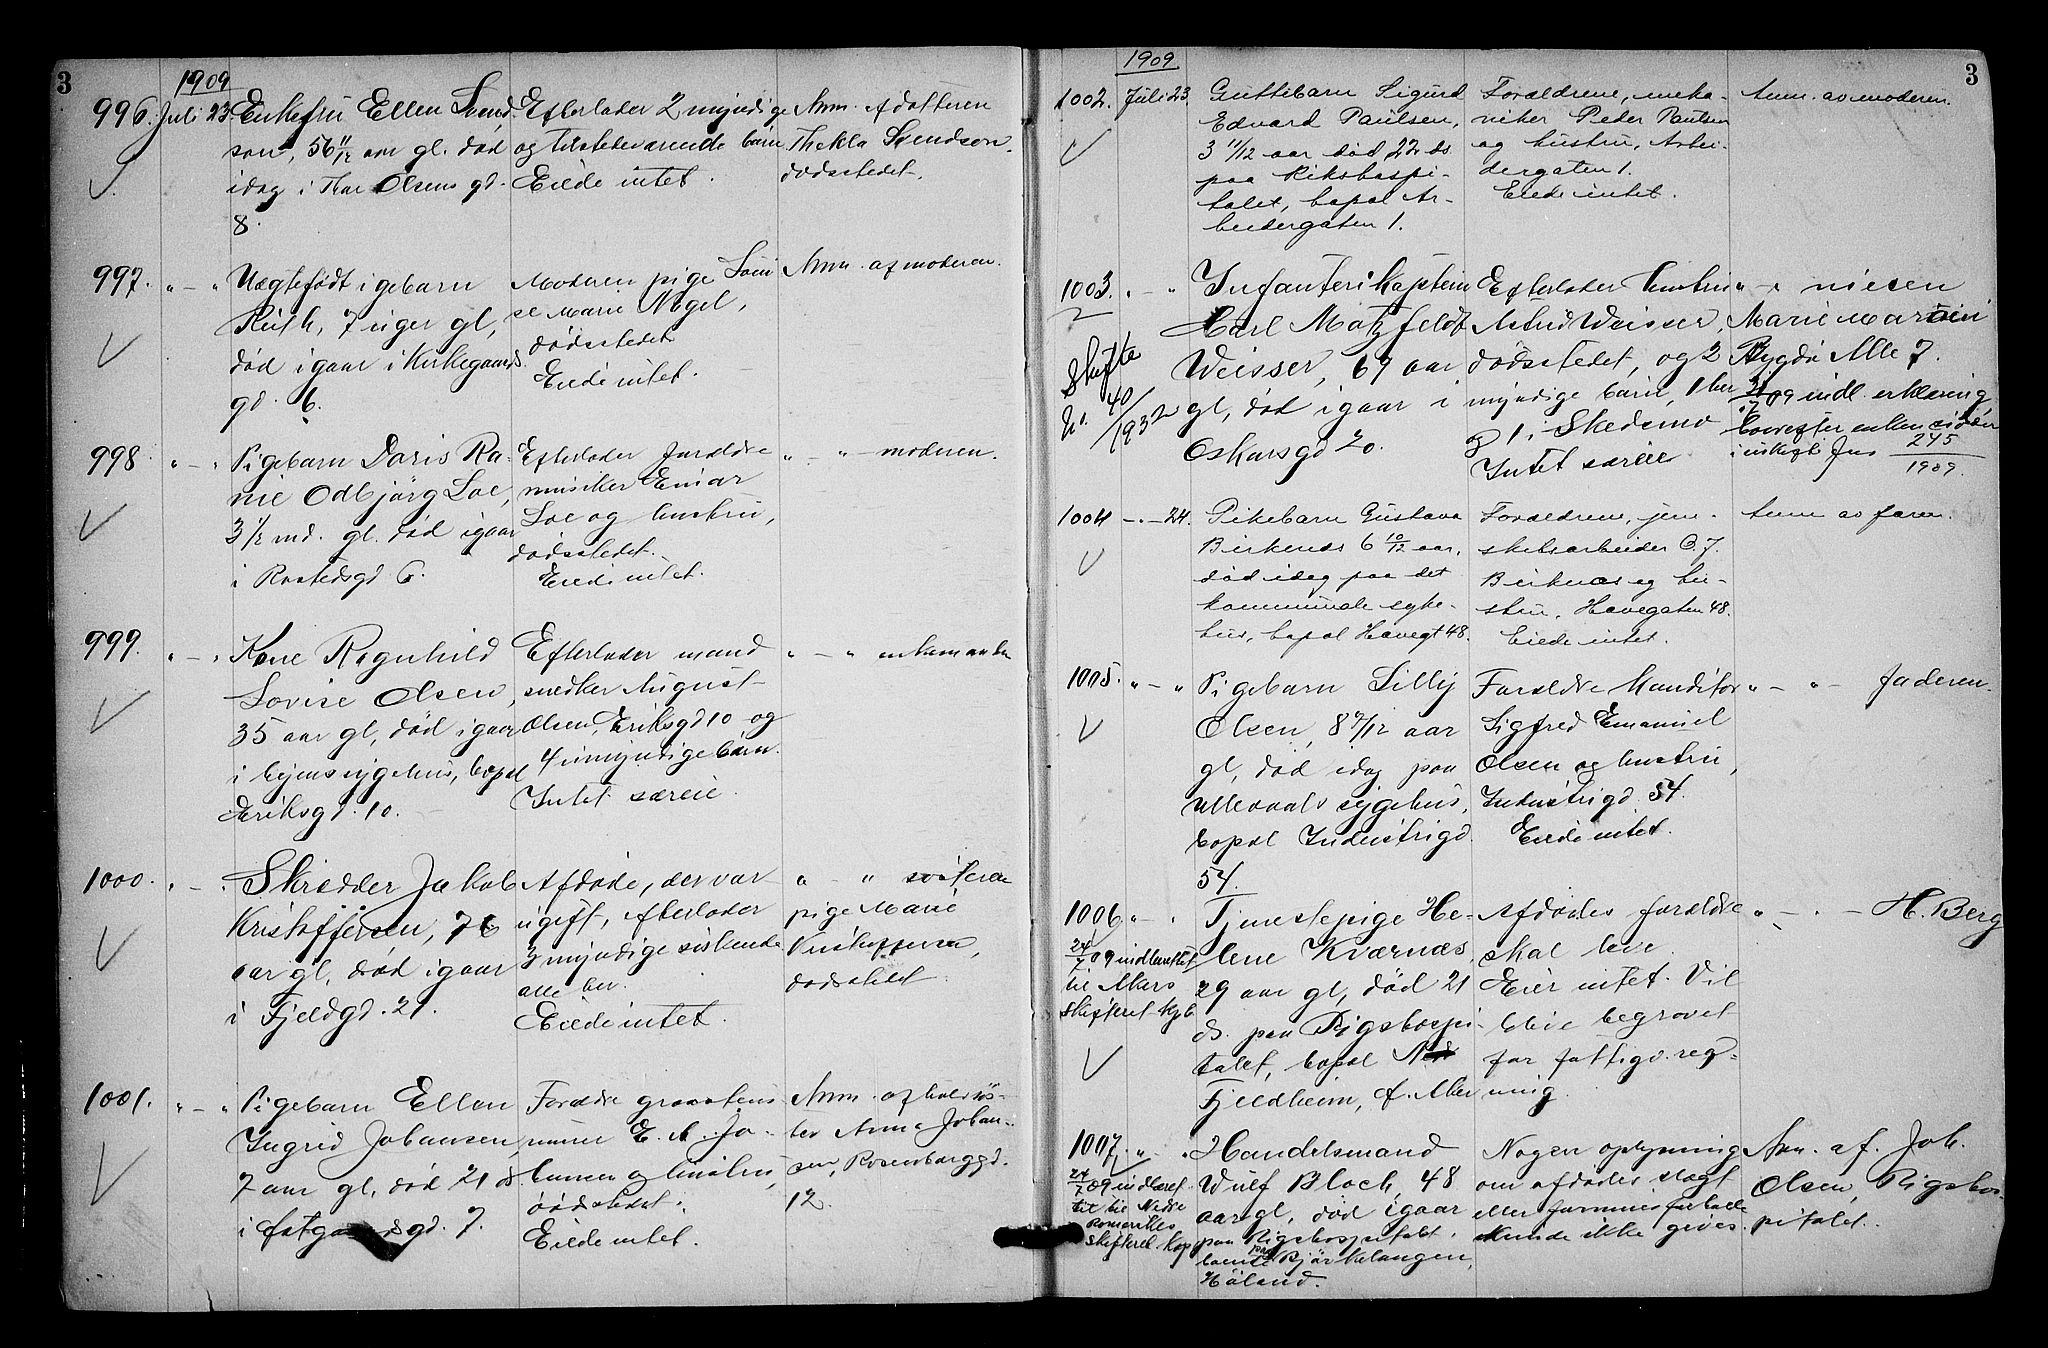 3
1909
996. Juli 23. Enkefru Ellen Svend-
sen, 56 11/12 aar gl. død
idag i Thor Olsens gd.
8.
Efterlader 2 myndige
og tilstedeværende børn
Eiede intet.
Anm. af datteren
Thekla Svendsen
dødsstedet.
997. " - " Uægtefødt igebarn
Ruth, 7 uger gl,
død igaar i Kirkegaards
gd. 6.
Moderen pige Loui
se Marie Nagel,
dødsstedet
Eiede intet.
Anm. af moderen.
998 " - " Pigebarn Doris Ra-
nie Odbjørg Loe,
3 1/2 md. gl. død igaar
i Rostedsgd 6.
Efterlader forældre
musiker Einar
Loe og hustru,
dødsstedet.
Eiede intet.
" - " - moderen.
999. " - " Kone Ragnhild
Lovise Olsen,
35 aar gl, død igaar
i byens sygehus, bopæl
Eriksgd. 10.
Efterlader mand
snedker August
Olsen, Eriksgd 10 og
4 umyndige børn.
Intet særeie.
" - " enkemanden
1000. " - " Skrædder Jakob
Kristoffersen, 76
aar gl, død igaar
i Fjeldgd. 21.
Afdøde, der var
ugift, efterlader
3 myndige søskende
alle her.
Eiede intet.
" - " søsteren
pige Marie
Kristoffersen,
dødsstedet
1001. " - " Pigebarn Ellen
Ingrid Johansen,
7 aar gl, død 21 ds.
i gd. 7.
Forældre
murer E. A. Jo-
hansen og hustru,
dødsstedet.
Eiede intet.
Anm. af halvsøs-
ter Anna Johan-
sen, Rosenborggd.
12.
3
1909
1002. Juli 23. Guttebarn Sigurd
Edvard Paulsen,
3 11/12 aar død 22 ds
paa Rikshospi-
talet, bopæl Ar-
beidergaten 1.
Forældrene, meka-
niker Peder Paulsen
og hustru, Arbei-
dergaten 1.
Eiede intet.
Anm. av moderen.
1003. " - " Infanterikaptein
Karl Matzfeldt
Weisser, 67 aar
gl, død igaar i
Oskarsgd 20.
Skifte
No. 40/1932
Efterlader hustru
Astrid Weisser,
dødsstedet, og 2
myndige børn, 1 her
og 1 i Skedsmo
Intet særeie
" - " niesen
Marie
Bygdø Alle 7.
09 indl. erklæring
enken
245
1909.
1004 - " - 24. Pikebarn Gustava
Birkenæs 6 10/12 aar,
død idag paa det
kommunale syke-
hus, bopæl Havegt 48.
Forældrene, jern-
skibsarbeider O. J.
Birkenæs og hu-
stru, Havegaten 48.
Eiede intet.
Anm av faren.
1005. " - " Pigebarn Lilly
Olsen, 8 9/12 aar
gl, død idag paa
Ullevaals sygehus,
bopæl Industrigd.
54.
Forældre Konditor
Sigfred Emanuel
Olsen og hustru,
Industrigd. 54.
Eiede intet.
" - " - faderen.
1006 " - " Tjenestepige He-
lene Kværnæs,
29 aar gl, død 21
ds. paa Rigshospi-
talet, bopæl
Fjeldheim, Ø. Aker
24/7 09 indberettet
til Akers
Skifteret
Afdødes forældre
skal leve
Eier intet. Vil
blive begravet
for fattigv. reg-
ning.
" - " - H. Berg
1007. " - " Handelsmand
Wulf Bloch, 48
aar gl, død igaar
paa Rigshospitalet,
boende paa Bjørkelangen,
Høland.
24/7 09 indberet-
tet til Nedre
Romerikes
Skifteret
Nogen oplysning
om afdødes slægt
eller formuesforholde
kunde ikke gives.
Anm. af Joh.
Olsen, Rigshos-
pitalet.